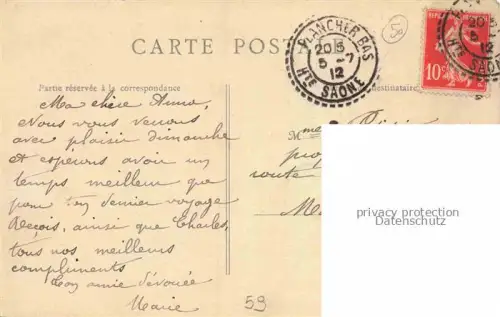 CARTE POSTA
PLANCHER-BAS
20 5
5 -7
12
Hte SAONE
20 5
5 -7
12
Hte SAONE
10c
Partie réservée à la correspondance
destinataire
Ma chère Anna,
Nous vous verrons
avec plaisir dimanche
et espérons avoir un
temps meilleur que
pour ton dernier voyage
Reçois, ainsi que Charles,
tous nos meilleurs
compliments
Ton amie dévouée
Marie
Mme
route
privacy protection
Datenschutz
59